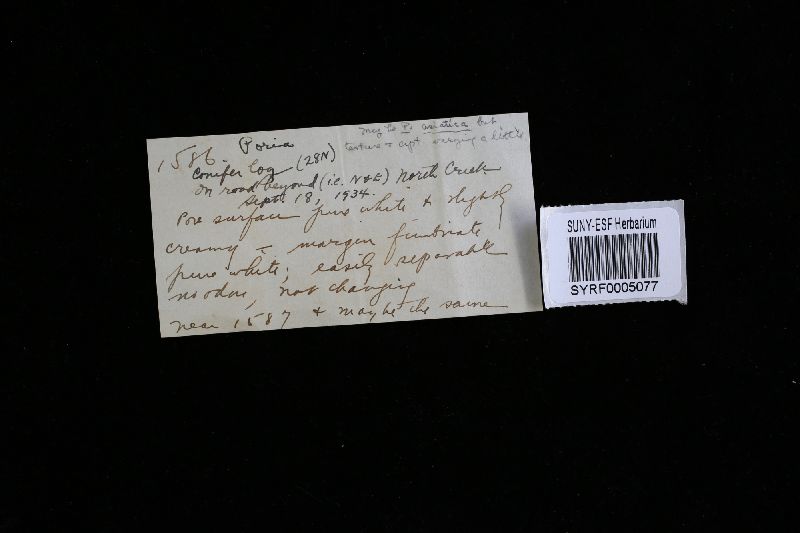 may be P. asiatica but
texture & cyst varying a little
1586. Poria
Conifer log (28N)
on road beyond (i.e. N & E) North Creek
Sept. 18, 1934.
Pore surface pure white & slightly
creamy - margin fimbriate
pure white; easily separable
no odor, not changing
near 1587 & maybe the same
SUNY-ESF Herbarium
SYRF0005077